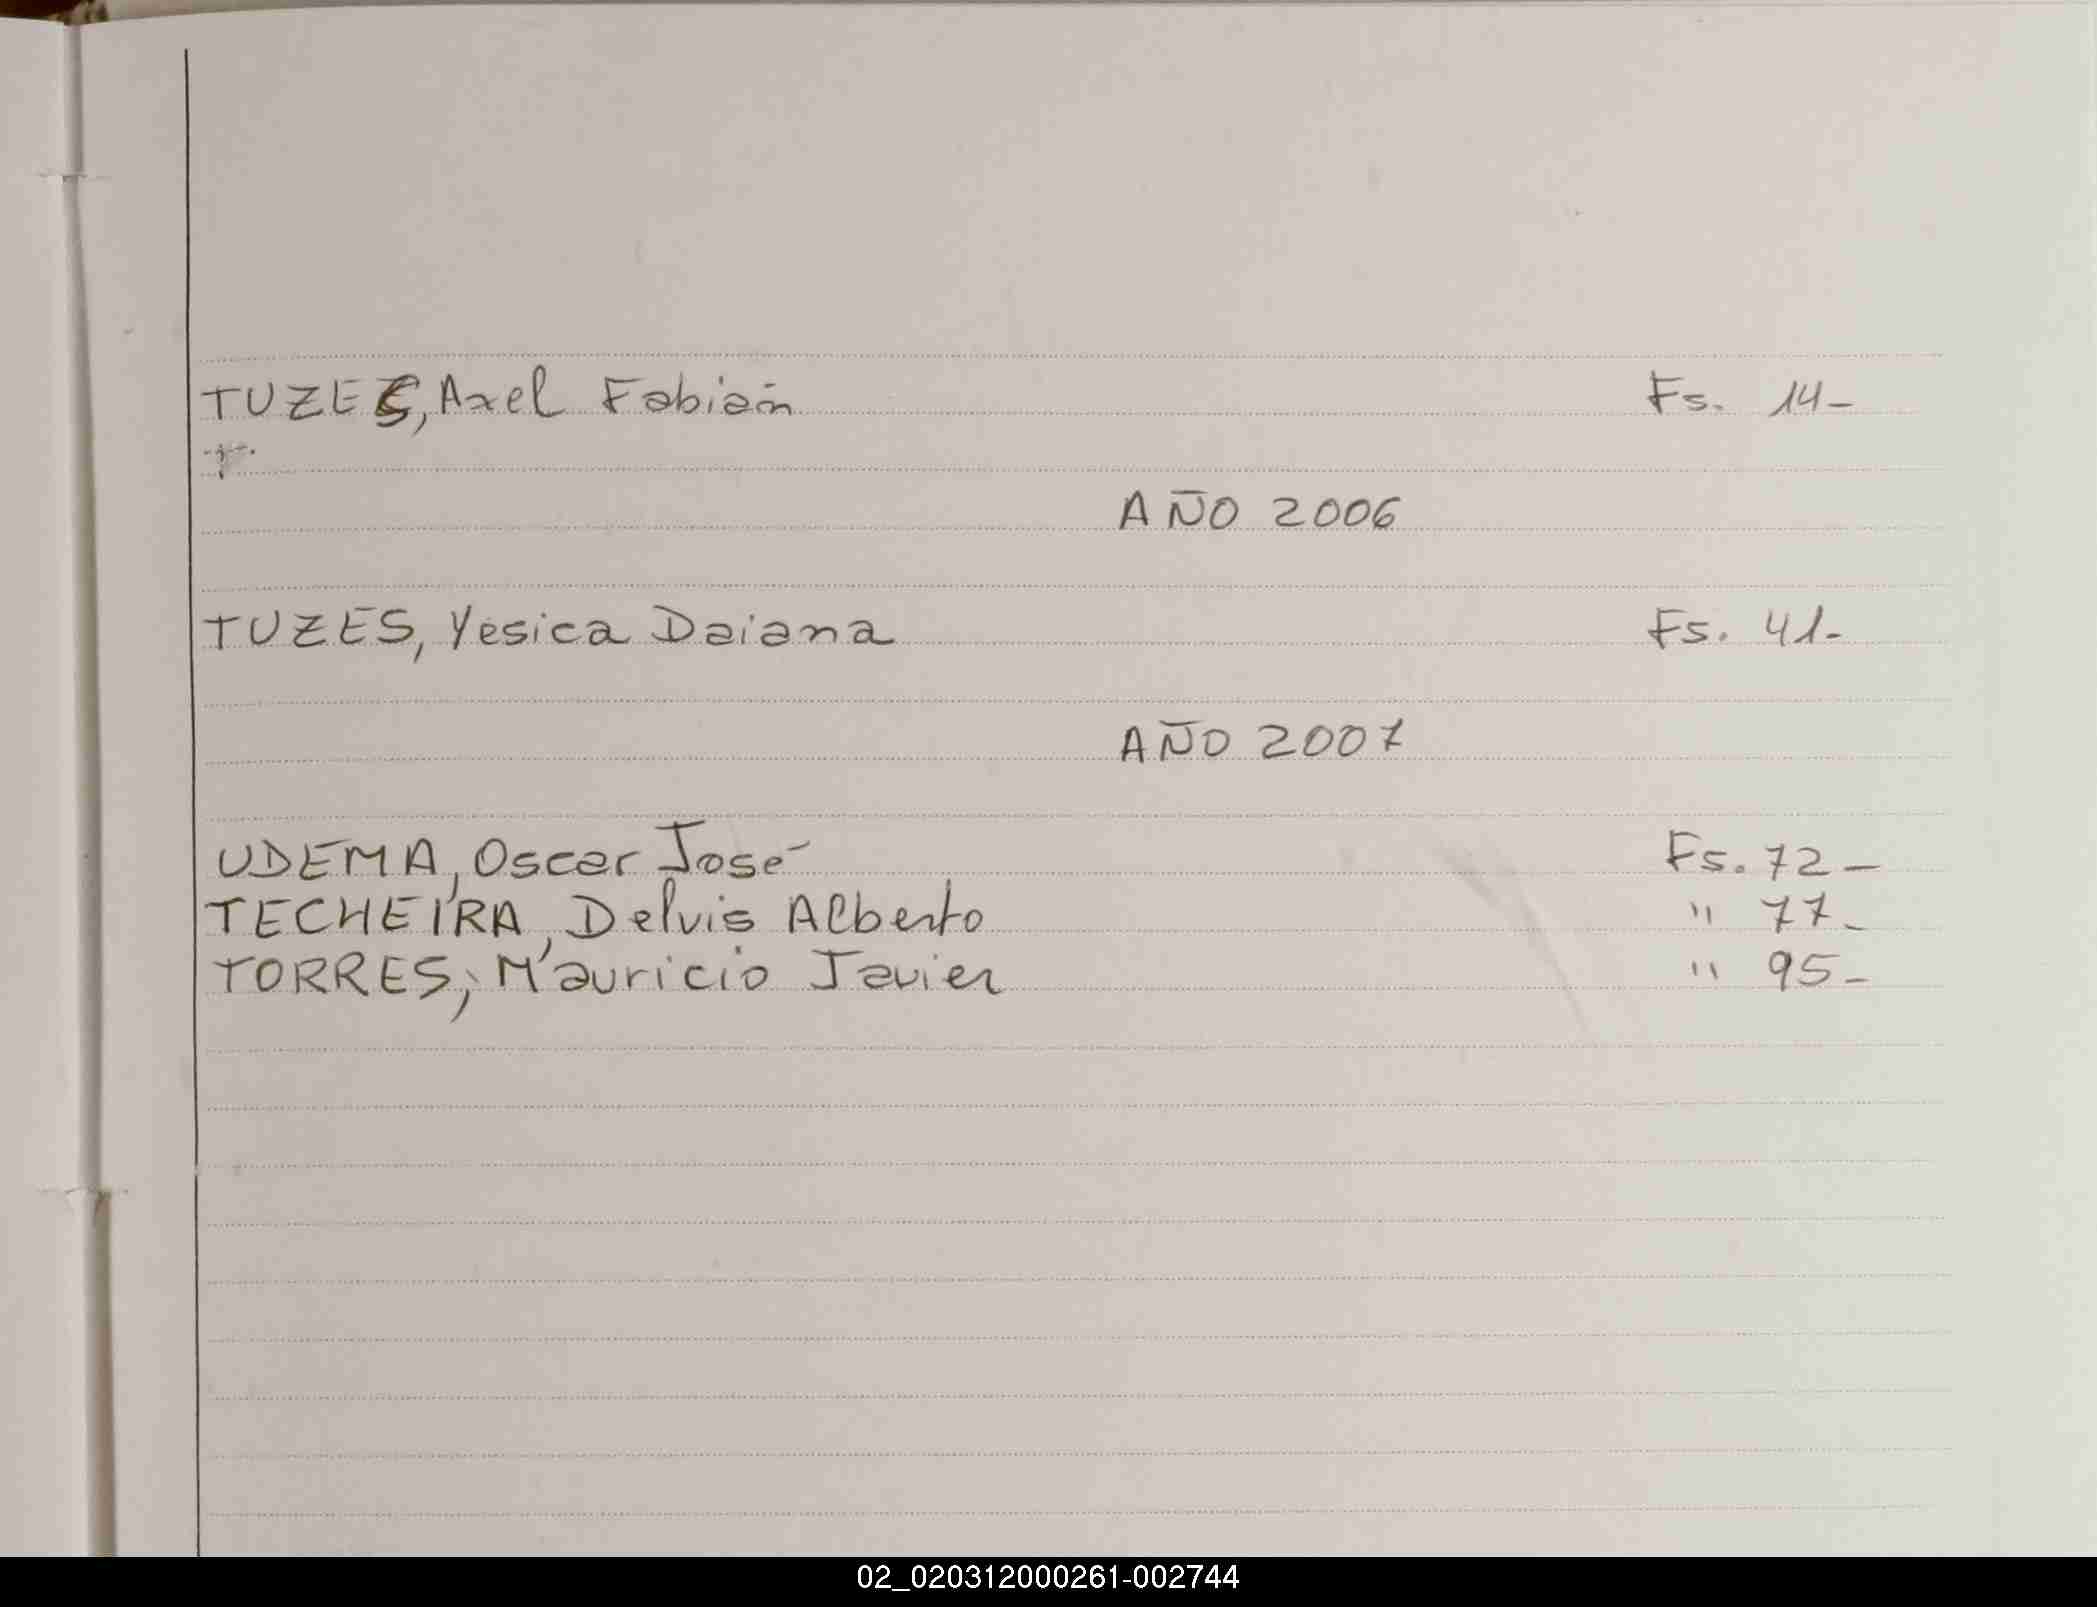 TUZES, Axel Fabián Fs. 14-
AÑO 2006
TUZES, Yesica Daiana Fs. 41-
AÑO 2007
UDEMA, Oscar José Fs. 72-
TECHEIRA, Delvis Alberto " 77-
TORRES, Mauricio Javier " 95-
02_020312000261-002744